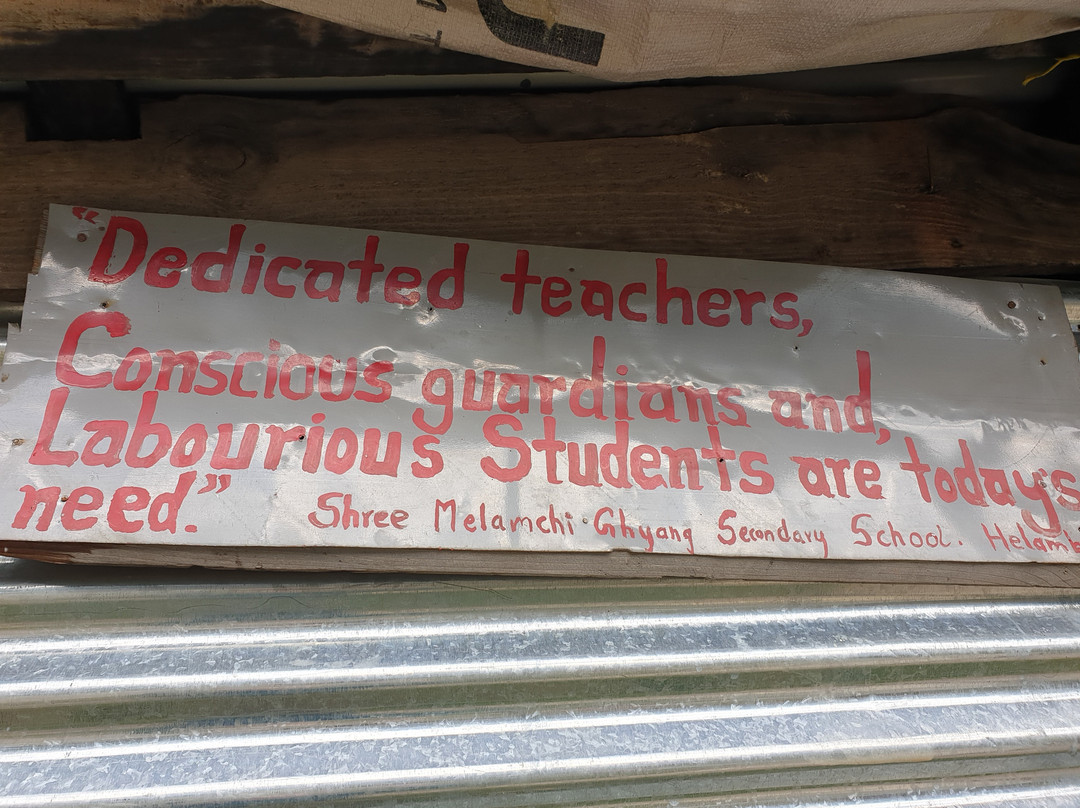 “Dedicated teachers,
Conscious guardians and,
Labourious Students are today's
need.”
Shree Melamchi Ghyang Secondary School. Helamb